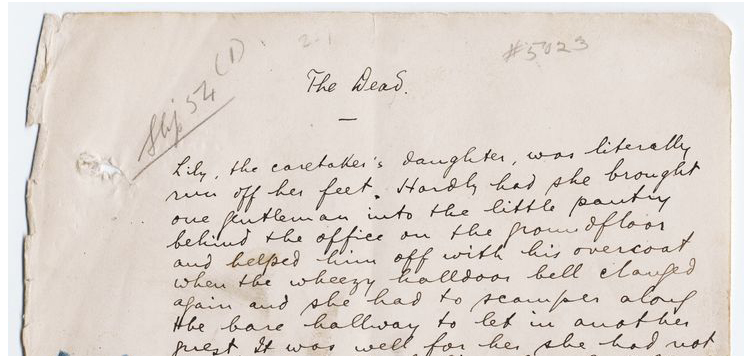 #5023
(1)
Slij 54
The Dead.
Lily, the caretaker's daughter, was literally
run off her feet. Hardly had she brought
one gentleman into the little pantry
behind the office on the groundfloor
and helped him off with his overcoat
when the wheezy halldoor bell clanged
again and she had to scamper along
the bare hallway to let in another
guest It was well for her she had not